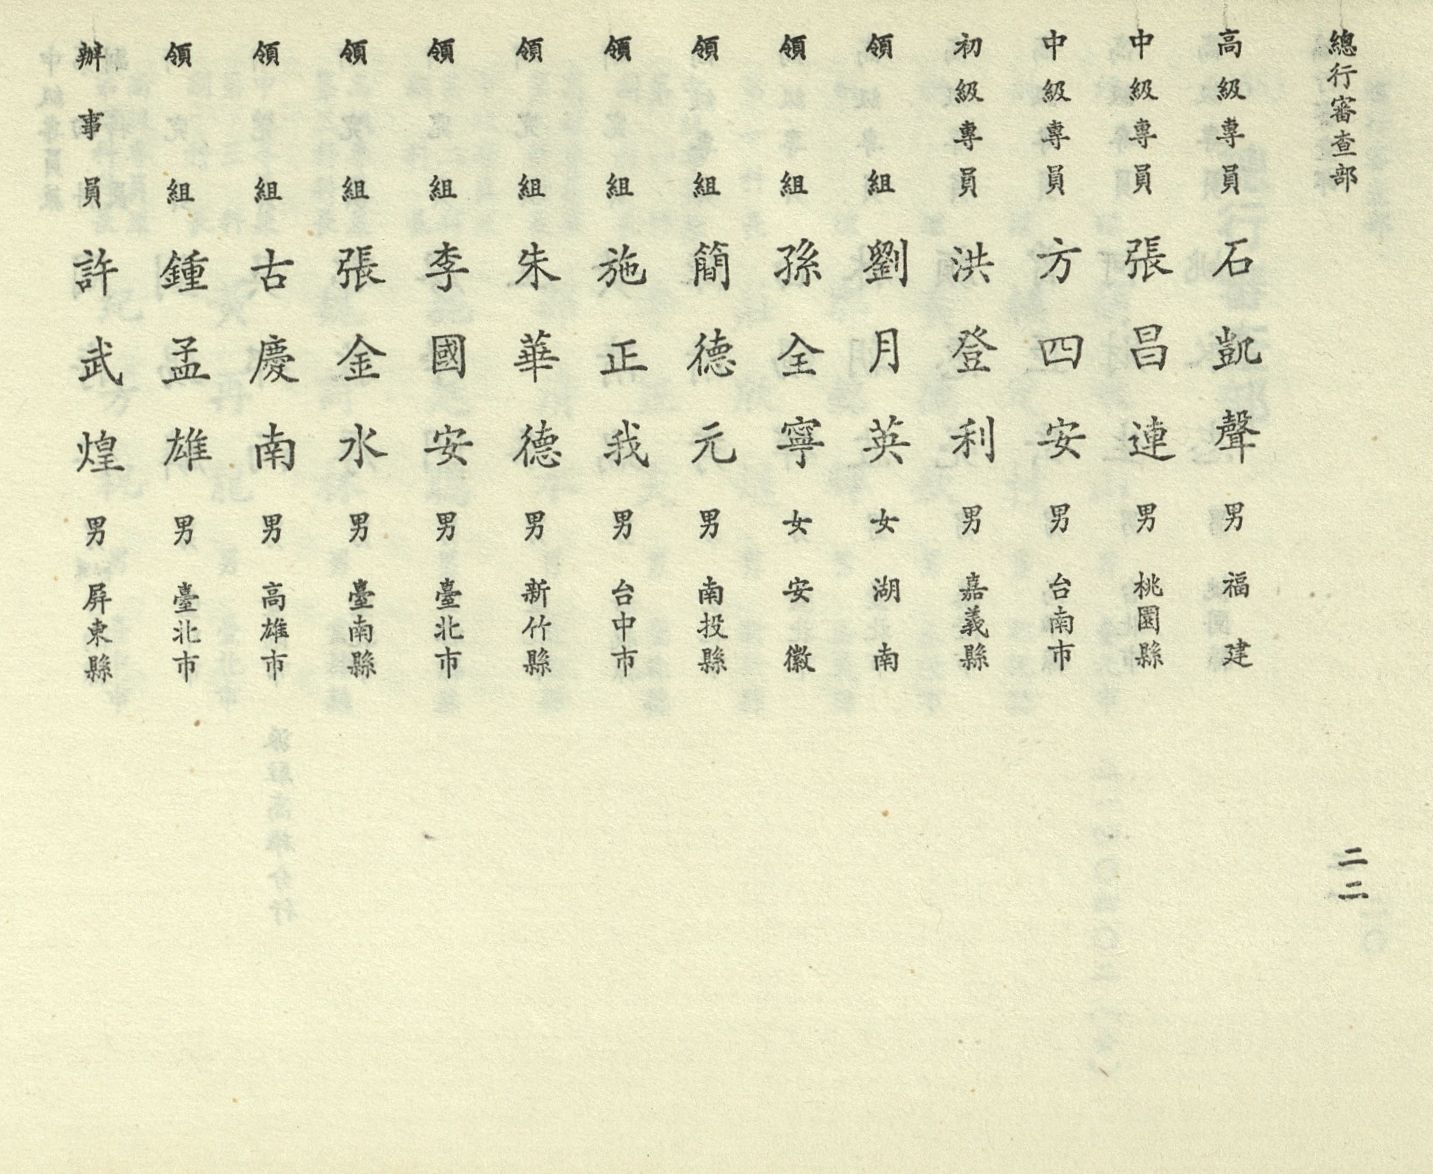 總行審查部
二二
高級專員 石凱聲 男 福建
中級專員 張昌連 男 桃園縣
中級專員 方四安 男 台南市
初級專員 洪登利 男 嘉義縣
領組 劉月英 女 湖南
領組 孫全寧 女 安徽
領組 簡德元 男 南投縣
領組 施正我 男 台中市
領組 朱華德 男 新竹縣
領組 李國安 男 臺北市
領組 張金水 男 臺南縣
領組 古慶南 男 高雄市
領組 鍾孟雄 男 臺北市
辦事員 許武煌 男 屏東縣